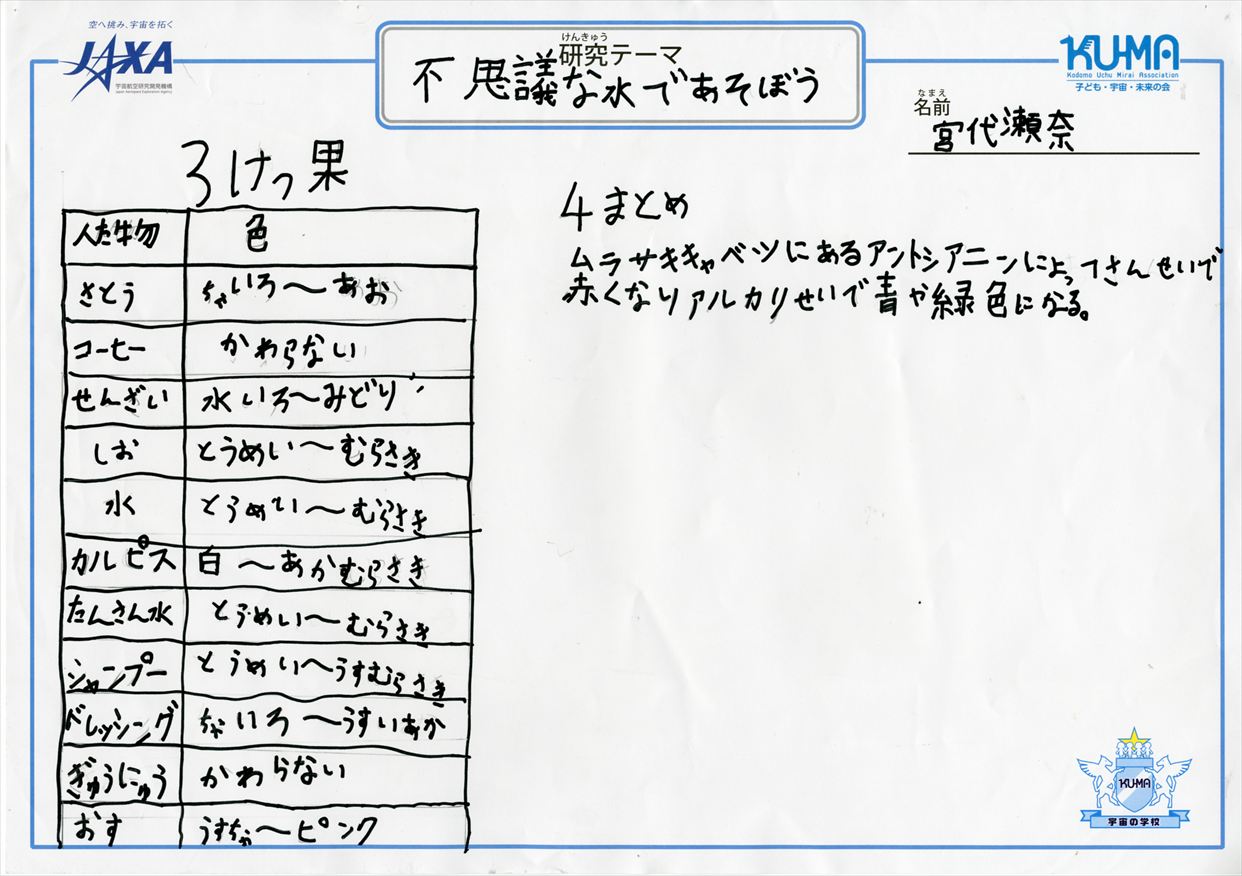 空へ挑み、宇宙を拓く
JAXA
宇宙航空研究開発機構
Japan Aerospace Exploration Agency
けんきゅう
研究テーマ
不思議な水であそぼう
KU-MA
Kodomo Uchu Mirai Association
子ども・宇宙・未来の会
なまえ
名前
宮代瀬奈
3 けっ果
色
さとう ちゃいろ〜あお
コーヒー かわらない
せんざい 水いろ〜みどり
しお とうめい〜むらさき
水 とうめい〜むらさき
カルピス 白〜あかむらさき
たんさん水 とうめい〜むらさき
シャンプー とうめい〜うすむらさき
ドレッシング ちゃいろ〜うすいあか
ぎゅうにゅう かわらない
おす うすちゃ〜ピンク
4 まとめ
ムラサキキャベツにあるアントシアニンによってさんせいで
赤くなりアルカリせいで青や緑色になる。
KU-MA
宇宙の学校